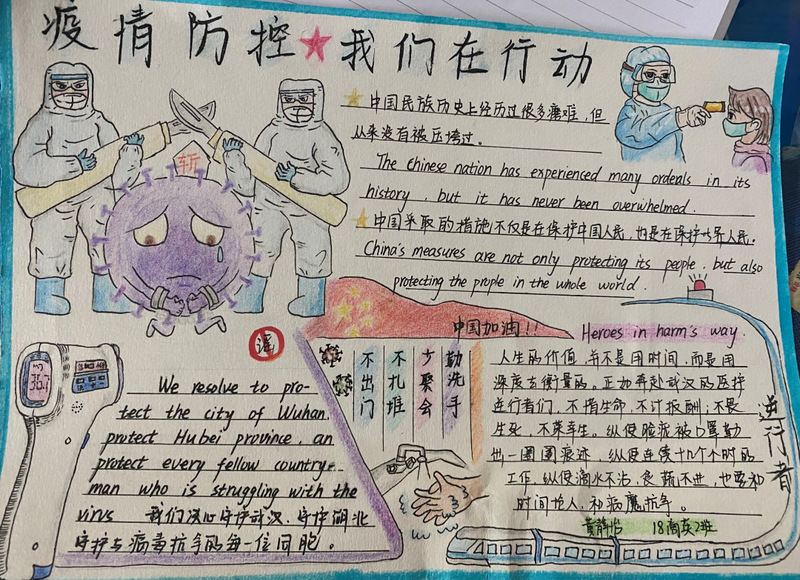 疫情防控★我们在行动
★中国民族历史上经历过很多磨难,但
从来没有被压垮过。
The Chinese nation has experienced many ordeals in its
history, but it has never been overwhelmed.
★中国采取的措施不仅是在保护中国人民,也是在保护世界人民。
China's measures are not only protecting its people, but also
protecting the prople in the whole world.
斩
中国加油!!
谣
36.7
We resolve to pro-
tect the city of Wuhan,
protect Hubei province, an
protect every fellow country-
man who is struggling with the
virus 我们决心守护武汉、守护湖北
守护与病毒抗争的每一位同胞。
不出门
不扎堆
少聚会
勤洗手
Heroes in harm's way.
人生的价值,并不是用时间,而是用
深度去衡量的。正如再赴武汉的医护
逆行者们,不惜生命,不计报酬;不畏
生死,不辞辛生。纵使脸庞被口罩勒
出一圈圈痕迹,纵使连续十几个小时的
工作,纵使滴水不沾,食
时间抢人,和病魔抗争。
逆行者
18商英2班